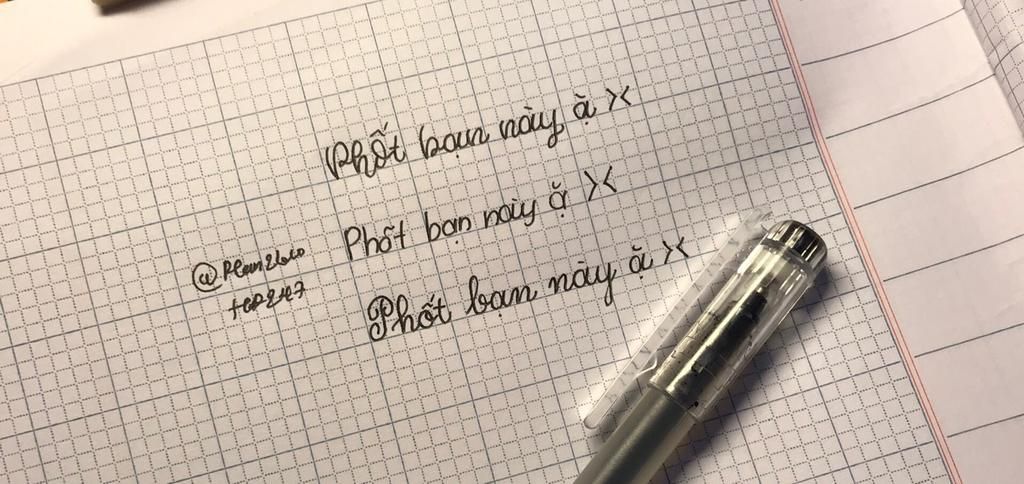 Phốt bạn này ặ ><
Phốt bạn này ặ ><
Phốt bạn này ặ ><